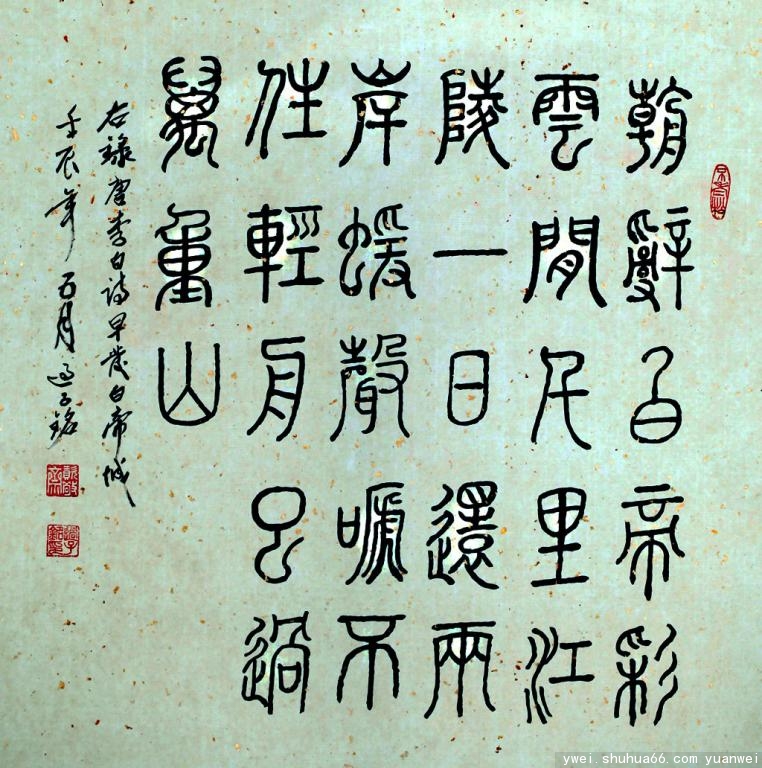 朝辭白帝彩
雲閒千里江
陵一日還兩
岸蝯聲嗁不
住輕舟已過
萬重山
右錄唐李白詩早發白帝城
壬辰年五月
ywei.shuhua66.com yuanwei